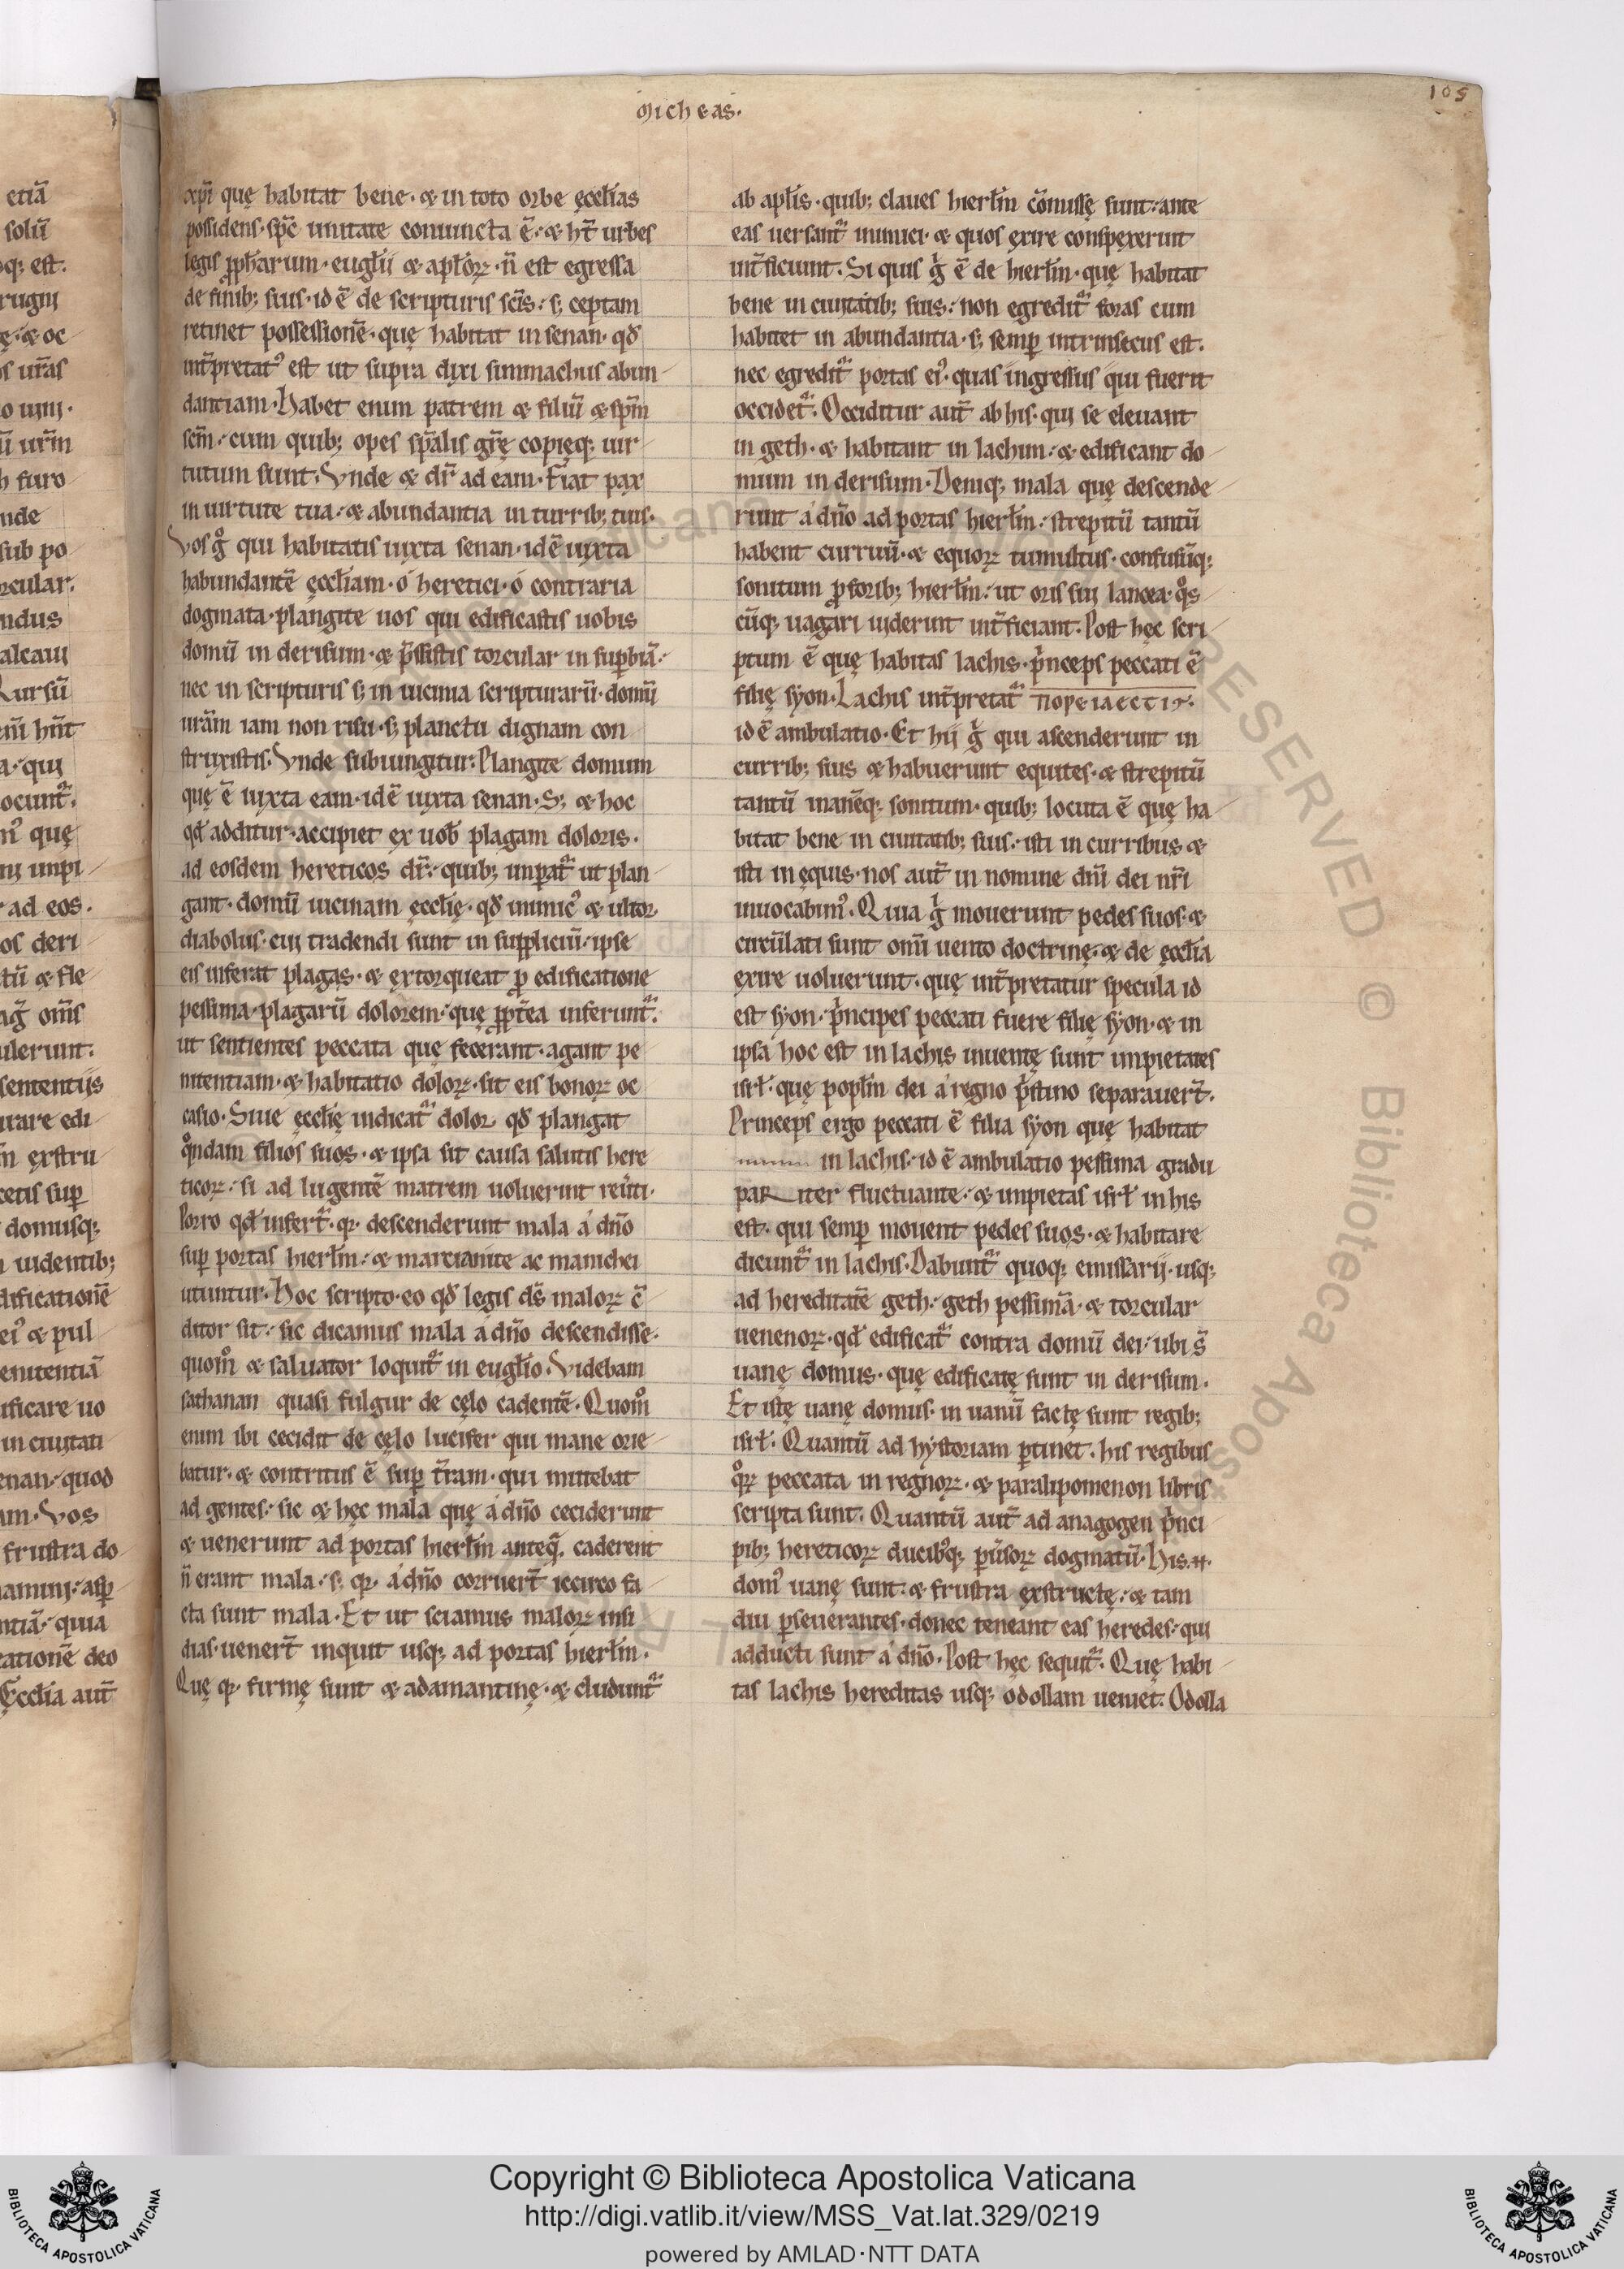 Micheas.
105
xp̄i quę habitat bene · & in toto orbe ęcctias
possidens · sp̄c unitate coniuncta ē · & ht̄ urbes
legis ꝓphārum · eugłii & apłoꝝ · n̄ est egressa
de finib; suis · id ē de scripturis scīs · s; ceptam
retinet possessionē · quę habitat in senan · qđ
int̄pretatꝰ est ut supra dixi simmachus abun-
dantiam · Habet enim patrem & filiū & sp̄m
scm̄ · cum quib; opes sp̄alis grę̄ copięq; uir-
tutum sunt. Vnde & dr̄ ad eam · Fiat pax
in uirtute tua · & abundantia in turrib; tuis ·
Vos gͦ qui habitatis iuxta senan · id ē iuxta
habundantē ęccłiam · ó heretici · ó contraria
dogmata · plangite uos qui edificastis uobis
domū in derisum · & p̄ssistis torcular in supbiā ·
nec in scripturis s; in uicinia scripturarū · domū
urām iam non risu · s; planctu dignam con
struxistis. Vnde subiungitur: Plangite domum
quę ē iuxta eam · id ē iuxta senan · S; & hoc
qđ additur · accipiet ex uob̄ plagam doloris ·
ad eosdem hereticos dr̄ · quib; imꝑat᷒ ut plan-
gant · domū uicinam ęccłię · qđ inimicꝰ & ultor
diabolus · cui tradendi sunt in suppliciū · ipse
eis inferat plagas · & extorqueat ꝓ edificatione
pessima · plagarū dolorem · quę ꝓpt̄ea inferunt᷒.
ut sentientes peccata que fecerant · agant pe
nitentiam · & habitatio doloꝝ · sit eis bonoꝝ oc
casio · Siue ęccłię indicat᷒ dolor qđ plangat
qͦndam filios suos · & ipsa sit causa salutis here
ticoꝝ · si ad lugentē matrem uoluerint reu̅ti ·
Porro qđ infert᷒ · qꝛ descenderunt mala á dn̄o
suꝑ portas hierłm · & marcianite ac manichei
utuntur · Hoc scripto · eo qđ legis ds̄ maloꝝ c̄
ditor sit · sic dicamus mala a dn̄o descendisse ·
quomͦ & saluator loquit᷒ in eugłio · Videbam
sathanan quasi fulgur de cęlo cadentē · Quomͦ
enim ibi cecidit de cęlo lucifer qui mane orie-
batur · & contritus ē suꝑ t̄ram · qui mittebat
ad gentes · sic & hęc mala quę á dn̄o ceciderunt
& uenerunt ad portas hierłm anteq̄ caderent
n̄ erant mala · s; qꝛ á dn̄o corruert̄ iccirco fa-
cta sunt mala · Et ut sciamus maloꝝ insi
dias · uenert̄ inquit usq; ad portas hierłm ·
Quę qꝛ firmę sunt & adamantinę · & cludunt᷒
ab apłis · quib; claues hierłm cōmissę sunt · ante
eas uersant᷒ inimici · & quos exire conspexerunt
int̄ficiunt. Si quis gͥ ē de hierłm · quę habitat
bene in ciuitatib; suis · non egredit᷒ foras cum
habitet in abundantia · s; semꝑ intrinsecus est.
nec egredit᷒ portas eiꝰ · quas ingressus qui fuerit
occidet᷒. Occiditur aut̄ ab his · qui se eleuant
in geth · & habitant in lachim · & edificant do-
mum in derisum · Deniq; mala quę descende-
runt á dn̄o ad portas hierłm · strepitū tantū
habent curruū · & equoꝝ tumultus · confusūq;
sonitum ꝓ forib; hierłm · ut oris sui lancea · qͦs-
cūq; uagari uiderint int̄ficiant. Post hęc scri-
ptum ē quę habitas lachis · p̄nceps peccati ē
filię syon · Lachis int̄pretat᷒ πορειαεστιν.
id ē ambulatio · Et hij gͥ qui ascenderunt in
currib; suis & habuerunt equites · & strepitū
tantū inanēq; sonitum · quib; locuta ē quę ha
bitat bene in ciuitatib; suis · isti in curribus &
isti in ęquis · nos aut̄ in nomine dn̄i dei nr̄i
inuocabimꝰ. Quia gͥ mouerunt pedes suos · &
circūlati sunt omī uento doctrinę · & de ęccłia
exire uoluerunt · quę int̄pretatur specula id
est syon · p̄ncipes peccati fuere filię syon · & in
ipsa hoc est in lachis inuentę sunt impietates
isrł · quę popłm dei á regno p̄stino separauert̄.
Princeps ergo peccati ē filia syon quę habitat
in lachis · id ē ambulatio pessima gradu
pariter fluctuante · & impietas isrł in his
est · qui semꝑ mouent pedes suos · & habitare
dicunt᷒ in lachis. Dabunt᷒ quoq; emissarij · usq;
ad hereditatē geth · geth pessimā · & torcular
uenenoꝝ · qđ edificat᷒ contra domū dei · ubi s̄
uanę domus · quę edificatę sunt in derisum ·
Et istę uanę domus · in uanū factę sunt regib;
isrł · Quantū ad hystoriam ꝑtinet · his regibus
qͦꝝ peccata in regnoꝝ · & paralipomenon libris
scripta sunt. Quantū aut̄ ad anagogen p̄nci-
pib; hereticoꝝ ducibꝰq; ꝑu̅soꝝ dogmatū · His
domꝰ uanę sunt · & frustra exstructę · & tam
diu ꝑseuerantes · donec teneant eas heredes · qui
adducti sunt á dn̄o · Post hęc sequit᷒ · Quę habi-
tas lachis hereditas usq; odollam ueniet. Odolla
Copyright © Biblioteca Apostolica Vaticana
http://digi.vatlib.it/view/MSS_Vat.lat.329/0219
powered by AMLAD·NTT DATA
BIBLIOTECA APOSTOLICA VATICANA
BIBLIOTECA APOSTOLICA VATICANA